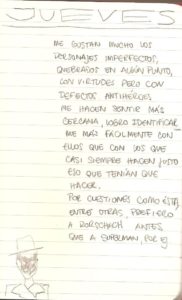 JUEVES
ME GUSTAN MUCHO LOS
PERSONAJES IMPERFECTOS,
QUEBRADOS EN ALGÚN PUNTO,
CON VIRTUDES PERO CON
DEFECTOS. ANTIHÉROES.
ME HACEN SENTIR MÁS
CERCANA, LOGRO IDENTIFICAR
ME MÁS FÁCILMENTE CON
ELLOS QUE CON LOS QUE
CASI SIEMPRE HACEN JUSTO
ESO QUE TENÍAN QUE
HACER.
POR CUESTIONES COMO ÉSTA,
ENTRE OTRAS, PREFIERO
A RORSCHACH ANTES
QUE A SUPERMAN, POR EJ